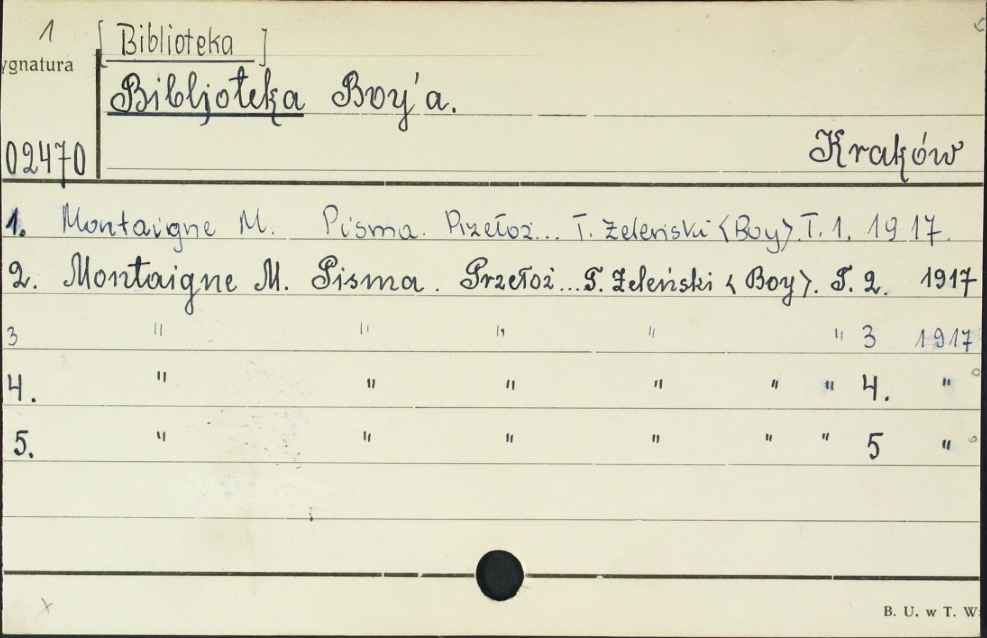 1 [Biblioteka]
ygnatura
Bibljoteka Boy'a.
02470 Kraków
1. Montaigne M. Pisma. Przełoż... T. Żeleński <Boy>. T. 1. 1917.
2. Montaigne M. Pisma. Przełoż... T. Żeleński <Boy>. T. 2. 1917
3 " " " " " 3 1917
4. " " " " " " 4. "
5. " " " " " " 5 "
x
B. U. w T. W